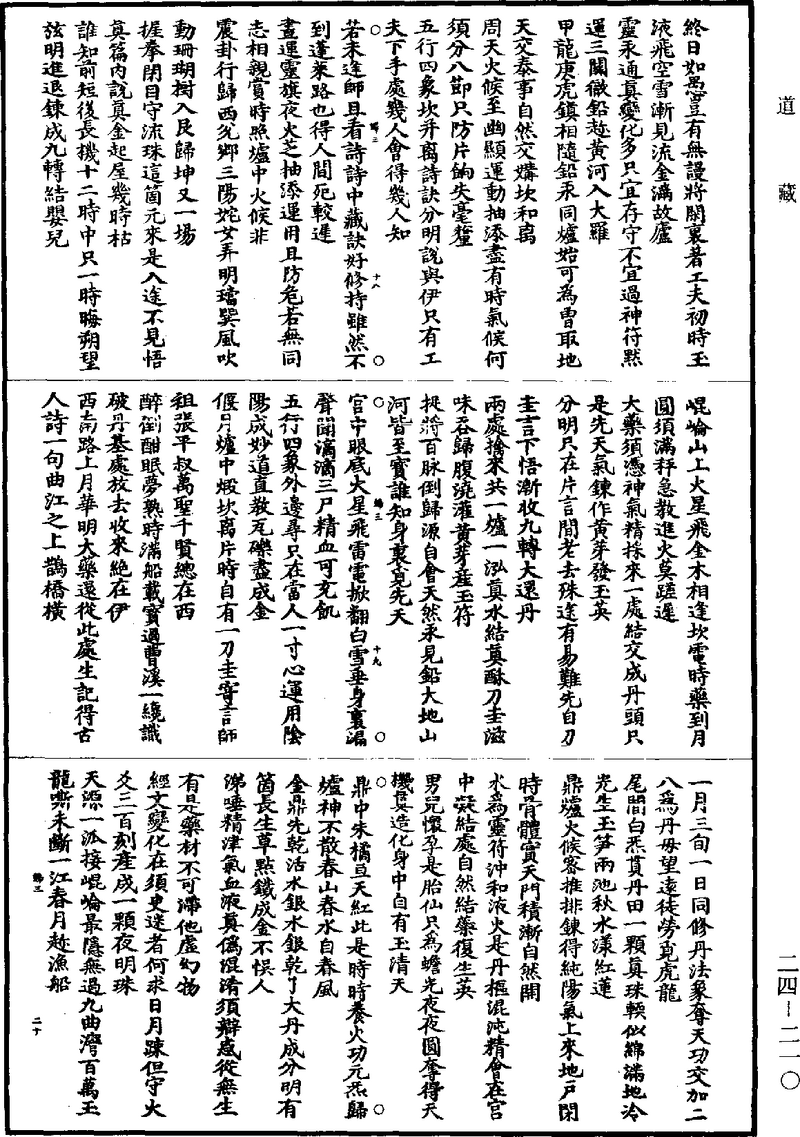 道藏
終日如愚豈有無謾將關裏著工夫初時玉
液飛空雪漸見流金滿故廬
靈汞通真變化多只宜存守不宜過神符默
運三關徹鉛趂黃河入大羅
甲龍庚虎鎮相隨鉛汞同爐始可為曾取地
天交泰事自然交媾坎和离
周天火候至幽顯運動抽添盡有時氣候何
須分八節只防片餉失毫釐
五行四象坎并离詩訣分明說與伊只有工
夫下手處幾人會得幾人知
若未逢師且看詩詩中藏訣好修持雖然不
到蓬萊路也得人間死較遲
晝運靈旗夜火芝抽添運用且防危若無同
志相親寶時照爐中火候非
震卦行歸西兌鄉三陽姹女弄明璫巽風吹
動珊瑚樹入艮歸坤又一場
握拳閉目守流珠這箇元來是入途不見悟
真篇內說真金起屋幾時枯
誰知前短後長機十二時中只一時晦朔望
弦明進退鍊成九轉結嬰兒
崐崘山上火星飛金木相逢坎電時藥到月
圓須滿秤急教進火莫蹉遲
大藥須憑神氣精採來一處結交成丹頭只
是先天氣鍊作黃芽發玉英
分明只在片言間老去殊途有易難先自刀
圭言下悟漸收九轉大還丹
兩處擒來共一爐一泓真水結真酥刀圭滋
味吞歸腹澆灌黃芽産玉符
捉將百脉倒歸源自會天然汞見鉛大地山
河皆至寶誰知身裏覓先天
官中眼底火星飛雷電掀翻白雪垂身裏漏
聲聞滴滴三尸精血可充飢
五行四象外邊尋只在當人一寸心運用陰
陽成妙道直教瓦礫盡成金
偃月爐中煅坎离片時自有一刀圭寄言師
祖張平叔萬聖千賢總在西
醉倒酣眠夢熟時滿船載寶過曹溪一纔識
破丹基處放去收來總在伊
西南路上月華明大藥還從此處生記得古
人詩一句曲江之上鵲橋橫
一月三旬一日同修丹法象奪天功交加二
八為丹母望遠徒勞覓虎龍
尾閭白炁貫丹田一顆真珠輭似綿滿地冷
光生玉笋兩池秋水漾紅蓮
鼎爐火候密推排鍊得純陽氣上來地戶閉
時骨體實天門積漸自然開
水為靈符沖和液火是丹樞混沌精會在宮
中凝結處自然結藥復生英
男兒懷孕是胎仙只為蟾光夜夜圓奪得天
機真造化身中自有玉清天
鼎中朱橘亘天紅此是時時養火功元炁歸
爐神不散春山春水自春風
金鼎先乾活水銀水銀乾了大丹成分明有
箇長生草點鐵成金不悞人
涕唾精津氣血液真偽混淆須辯惑從無生
有是藥材不可滯他虛幻物
經文變化在須臾迷者何求日月踈但守火
爻三百刻産成一顆夜明珠
天源一泒接崐崘最隱無過九曲灣百萬玉
龍嘶未斷一江春月趂漁船
二四－二一〇
十八
十九
二十